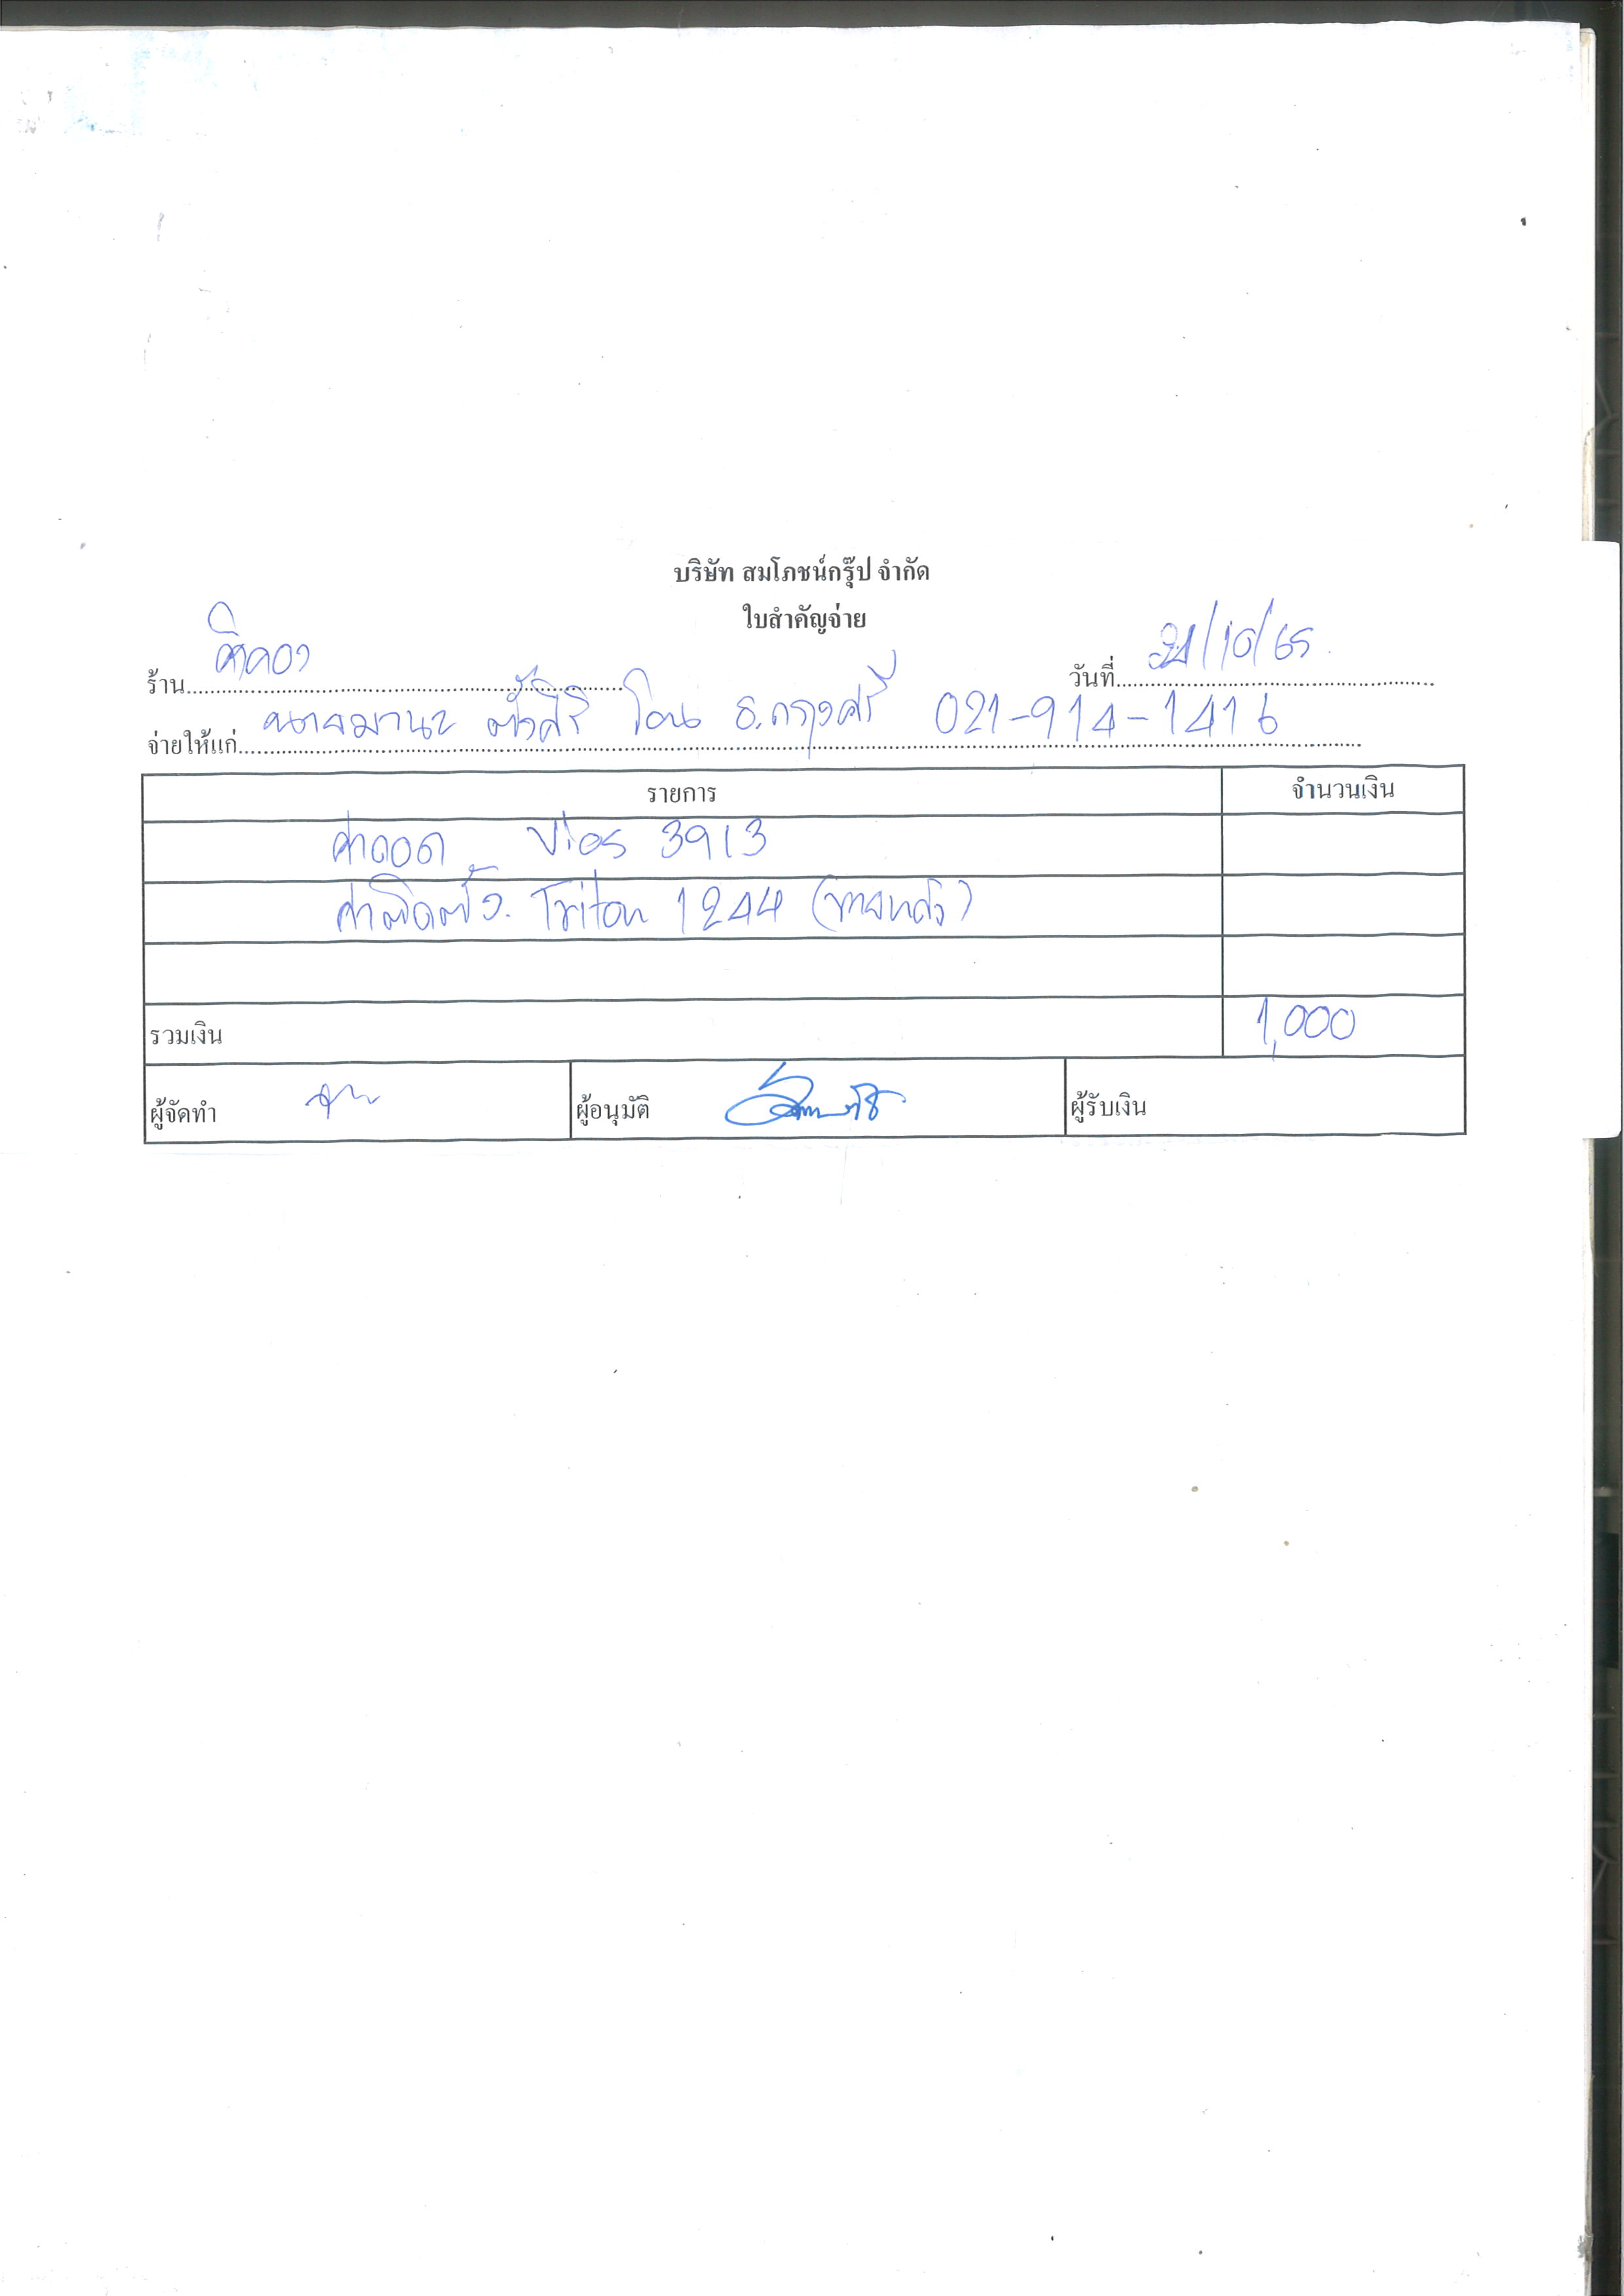 บริษัท สมโภชน์กรุ๊ป จำกัด
ใบสำคัญจ่าย
ร้าน
วันที่ /10/65
จ่ายให้แก่ นายมานะ ตั้งศิริ โอน ธ.กรุงศรี 021-914-1416
รายการ จำนวนเงิน
ค่าถอด Vios 3913
ค่าติดตั้ง. Triton 1244 (ขายแล้ว)
รวมเงิน 1,000
ผู้จัดทำ ผู้อนุมัติ ผู้รับเงิน